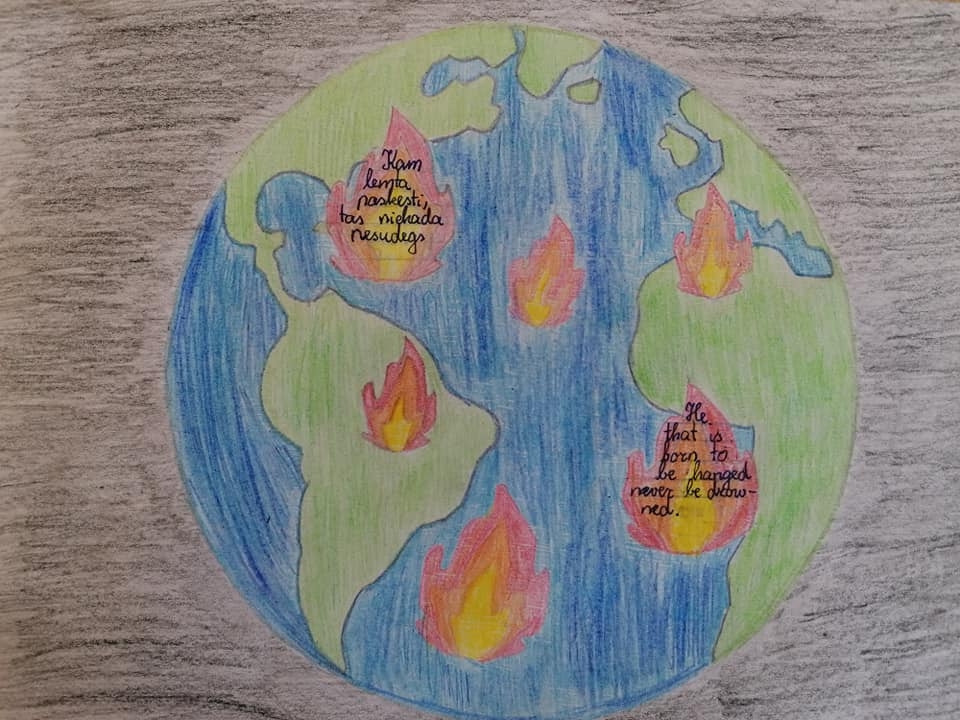 Kam
lemta
paskęsti,
tas niekada
nesudegs
He
that is
born to
be hanged
never be drow-
ned.